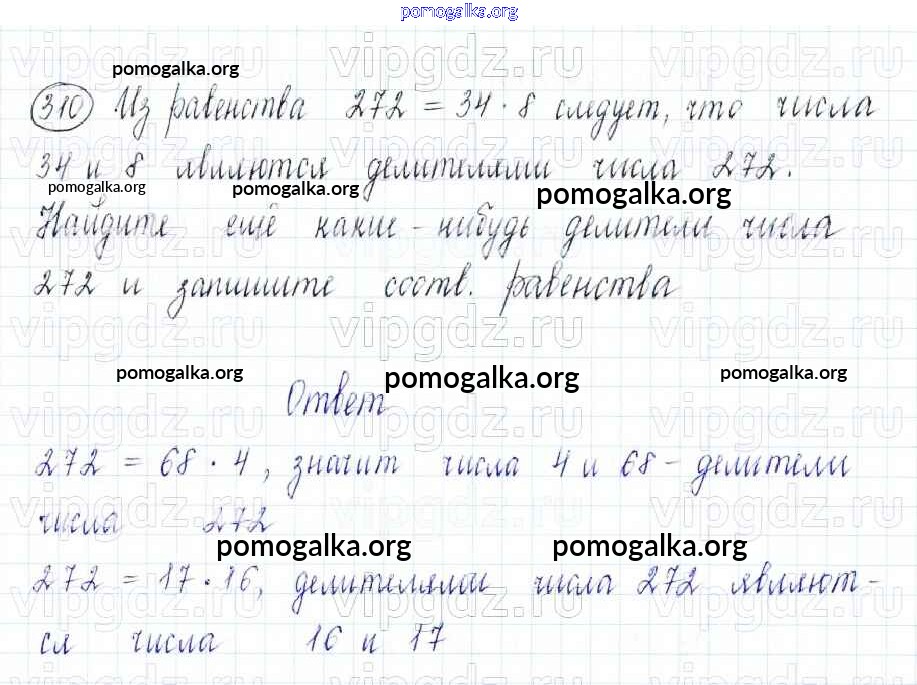 pomogalka.org
vipgdz.ru vipgdz.ru vipgdz.ru
pomogalka.org
310 Из равенства 272 = 34 · 8 следует, что числа
34 и 8 являются делителями числа 272.
pomogalka.org pomogalka.org pomogalka.org
Найдите ещё какие-нибудь делители числа
272 и запишите соотв. равенства
vipgdz.ru vipgdz.ru vipgdz.ru
pomogalka.org pomogalka.org pomogalka.org
Ответ
272 = 68 · 4, значит числа 4 и 68 - делители
числа 272
pomogalka.org pomogalka.org
272 = 17 · 16, делителями числа 272 являют-
ся числа 16 и 17